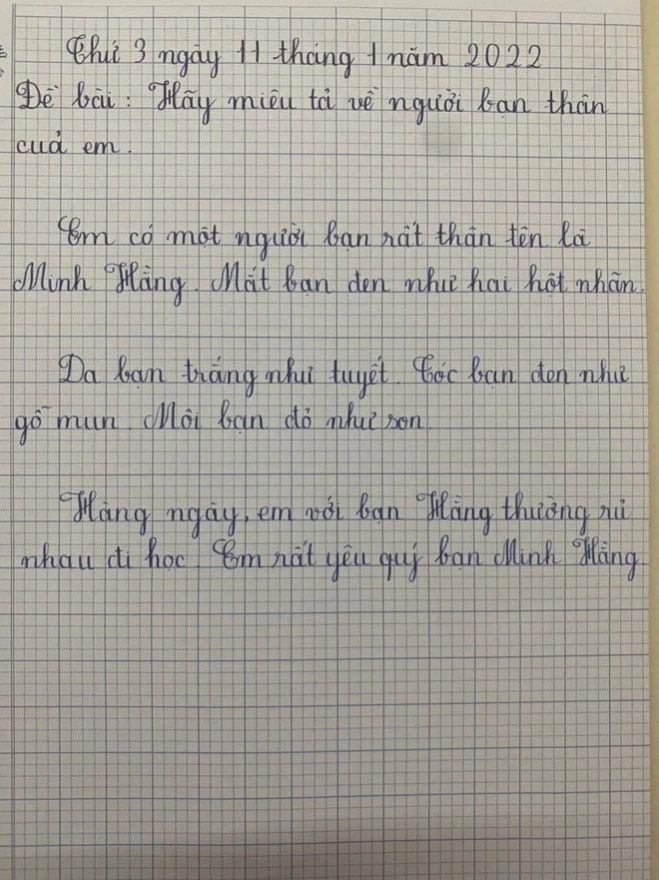 Thứ 3 ngày 11 tháng 1 năm 2022
Đề bài : Hãy miêu tả về người bạn thân
cuả em.
Em có một người bạn rất thân tên là
Minh Hằng. Mắt bạn đen như hai hột nhãn.
Da bạn trắng như tuyết. Tóc bạn đen như
gỗ mun. Môi bạn đỏ như son.
Hàng ngày, em với bạn Hằng thường rủ
nhau đi học. Em rất yêu quý bạn Minh Hằng